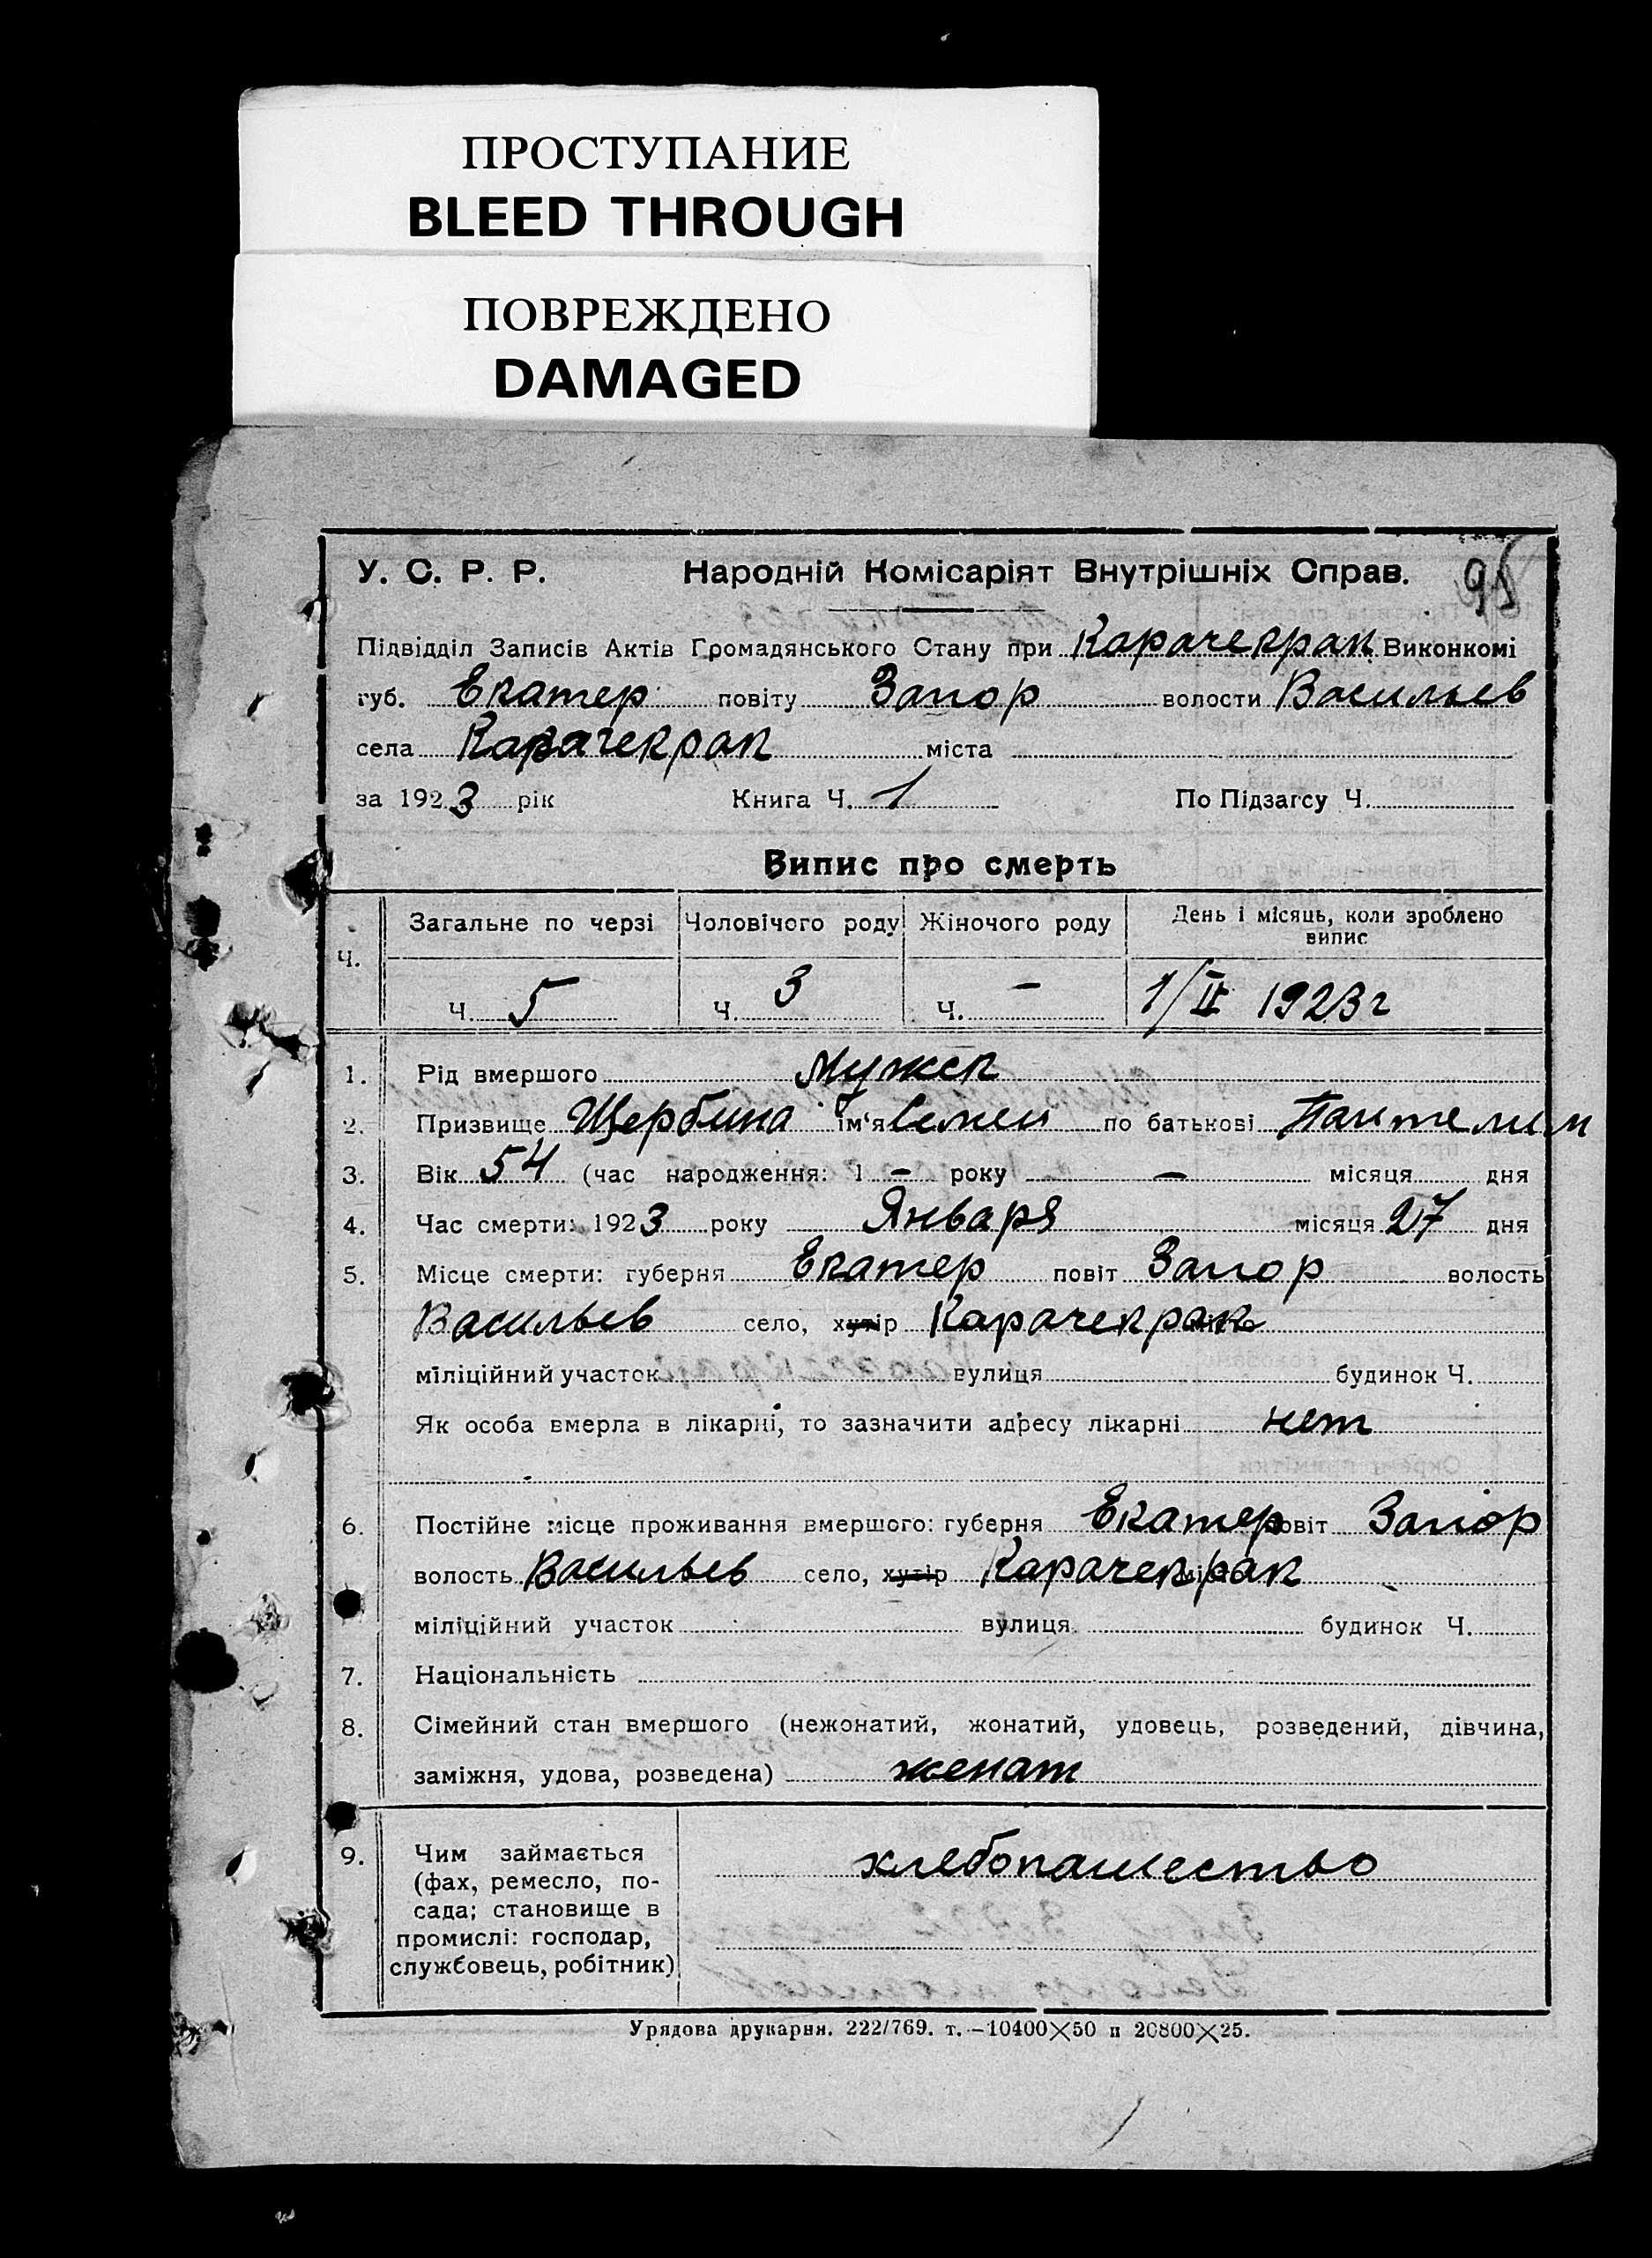 ПРОСТУПАНИЕ
BLEED THROUGH
ПОВРЕЖДЕНО
DAMAGED
У. С. Р. Р. Народній Комісаріят Внутрішніх Справ. 95
Підвідділ Записів Актів Громадянського Стану при Карачекрак Виконкомі
губ. Екатер повіту Запор волости Васильев
села Карачекрак міста
за 1923 рік Книга Ч. 1 По Підзагсу Ч.
Випис про смерть
Ч. Загальне по черзі Чоловічого роду Жіночого роду День і місяць, коли зроблено
випис
Ч. 5 Ч. 3 Ч. – 1/II 1923 г
1. Рід вмершого Мужск
2. Призвище Щербина ім'я Семен по батькові Пантелим
3. Вік 54 (час народження: 1 – року – місяця дня
4. Час смерти: 1923 року Января місяця 27 дня
5. Місце смерти: губерня Екатер повіт Запор волость
Васильев село, хутір Карачекрак
міліційний участок вулиця будинок Ч.
Як особа вмерла в лікарні, то зазначити адресу лікарні нет
6. Постійне місце проживання вмершого: губерня Екатер повіт Запор
волость Васильев село, хутір Карачекрак
міліційний участок вулиця будинок Ч.
7. Національність
8. Сімейний стан вмершого (нежонатий, жонатий, удовець, розведений, дівчина,
заміжня, удова, розведена) женат
9. Чим займається хлебопашество
(фах, ремесло, по-
сада; становище в
промислі: господар,
службовець, робітник)
Урядова друкарня. 222/769. т.–10400×50 п 20800×25.